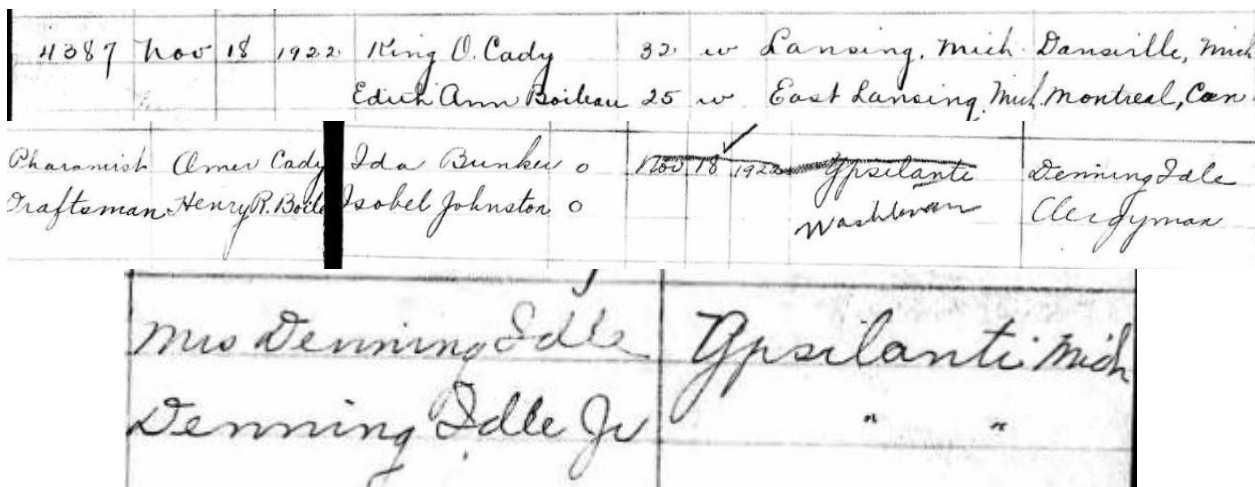 4387 Nov 18 1922 King O. Cady 32 w Lansing, Mich Dansville, Mich
Edith Ann Boileau 25 w East Lansing Mich Montreal, Can
Pharamist Omer Cady Ida Bunker o Nov 18 1922 Ypsilanti Denning Idle
Draftsman Henry R. Boile Isobel Johnston o Washtenaw Clergyman
Mrs Denning Idle Ypsilanti Mich
Denning Idle Jr " "